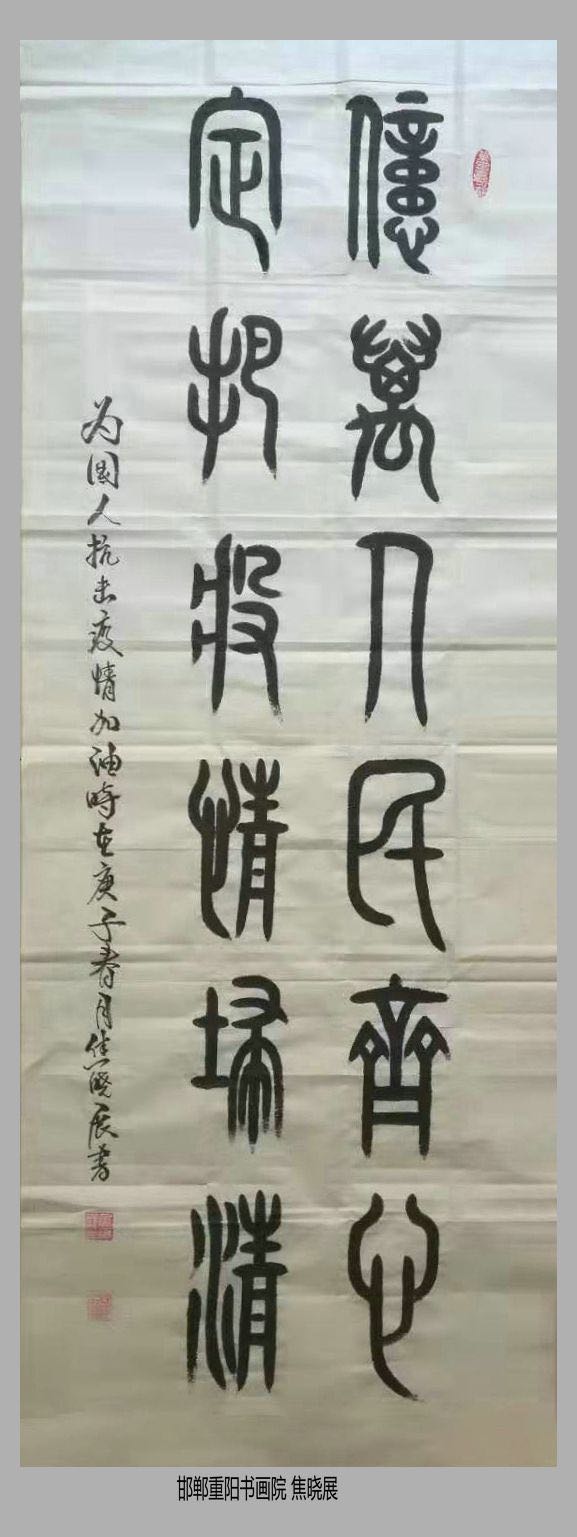 億萬人民齊心
定把疫情埽清
为國人抗击疫情加油時在庚子春月焦晓展書
邯郸重阳书画院 焦晓展